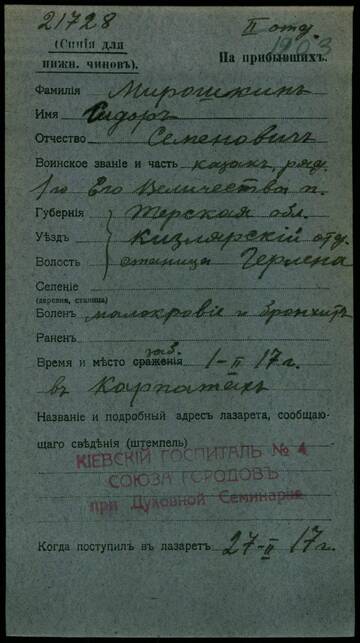 21728 II отд.
1903
(Синія для нижн. чиновъ). На прибывшихъ.
Фамилія Мирошкинъ
Имя Сидоръ
Отчество Семеновичъ
Воинское званіе и часть казакъ, ряд.
1го Его Величества п.
Губернія Терская обл.
Уѣздъ Кизлярскій отд.
Волость станица Черлена
Селеніе
(деревня, станица)
Боленъ малокровіе и бронхитъ
Раненъ
заб.
Время и мѣсто сраженія 1-II 17 г.
въ Карпатахъ
Названіе и подробный адресъ лазарета, сообщаю-
щаго свѣдѣнія (штемпель)
КІЕВСКІЙ ГОСПИТАЛЬ № 4
СОЮЗА ГОРОДОВЪ
при Духовной Семинаріи
Когда поступилъ въ лазаретъ 27-II 17 г.